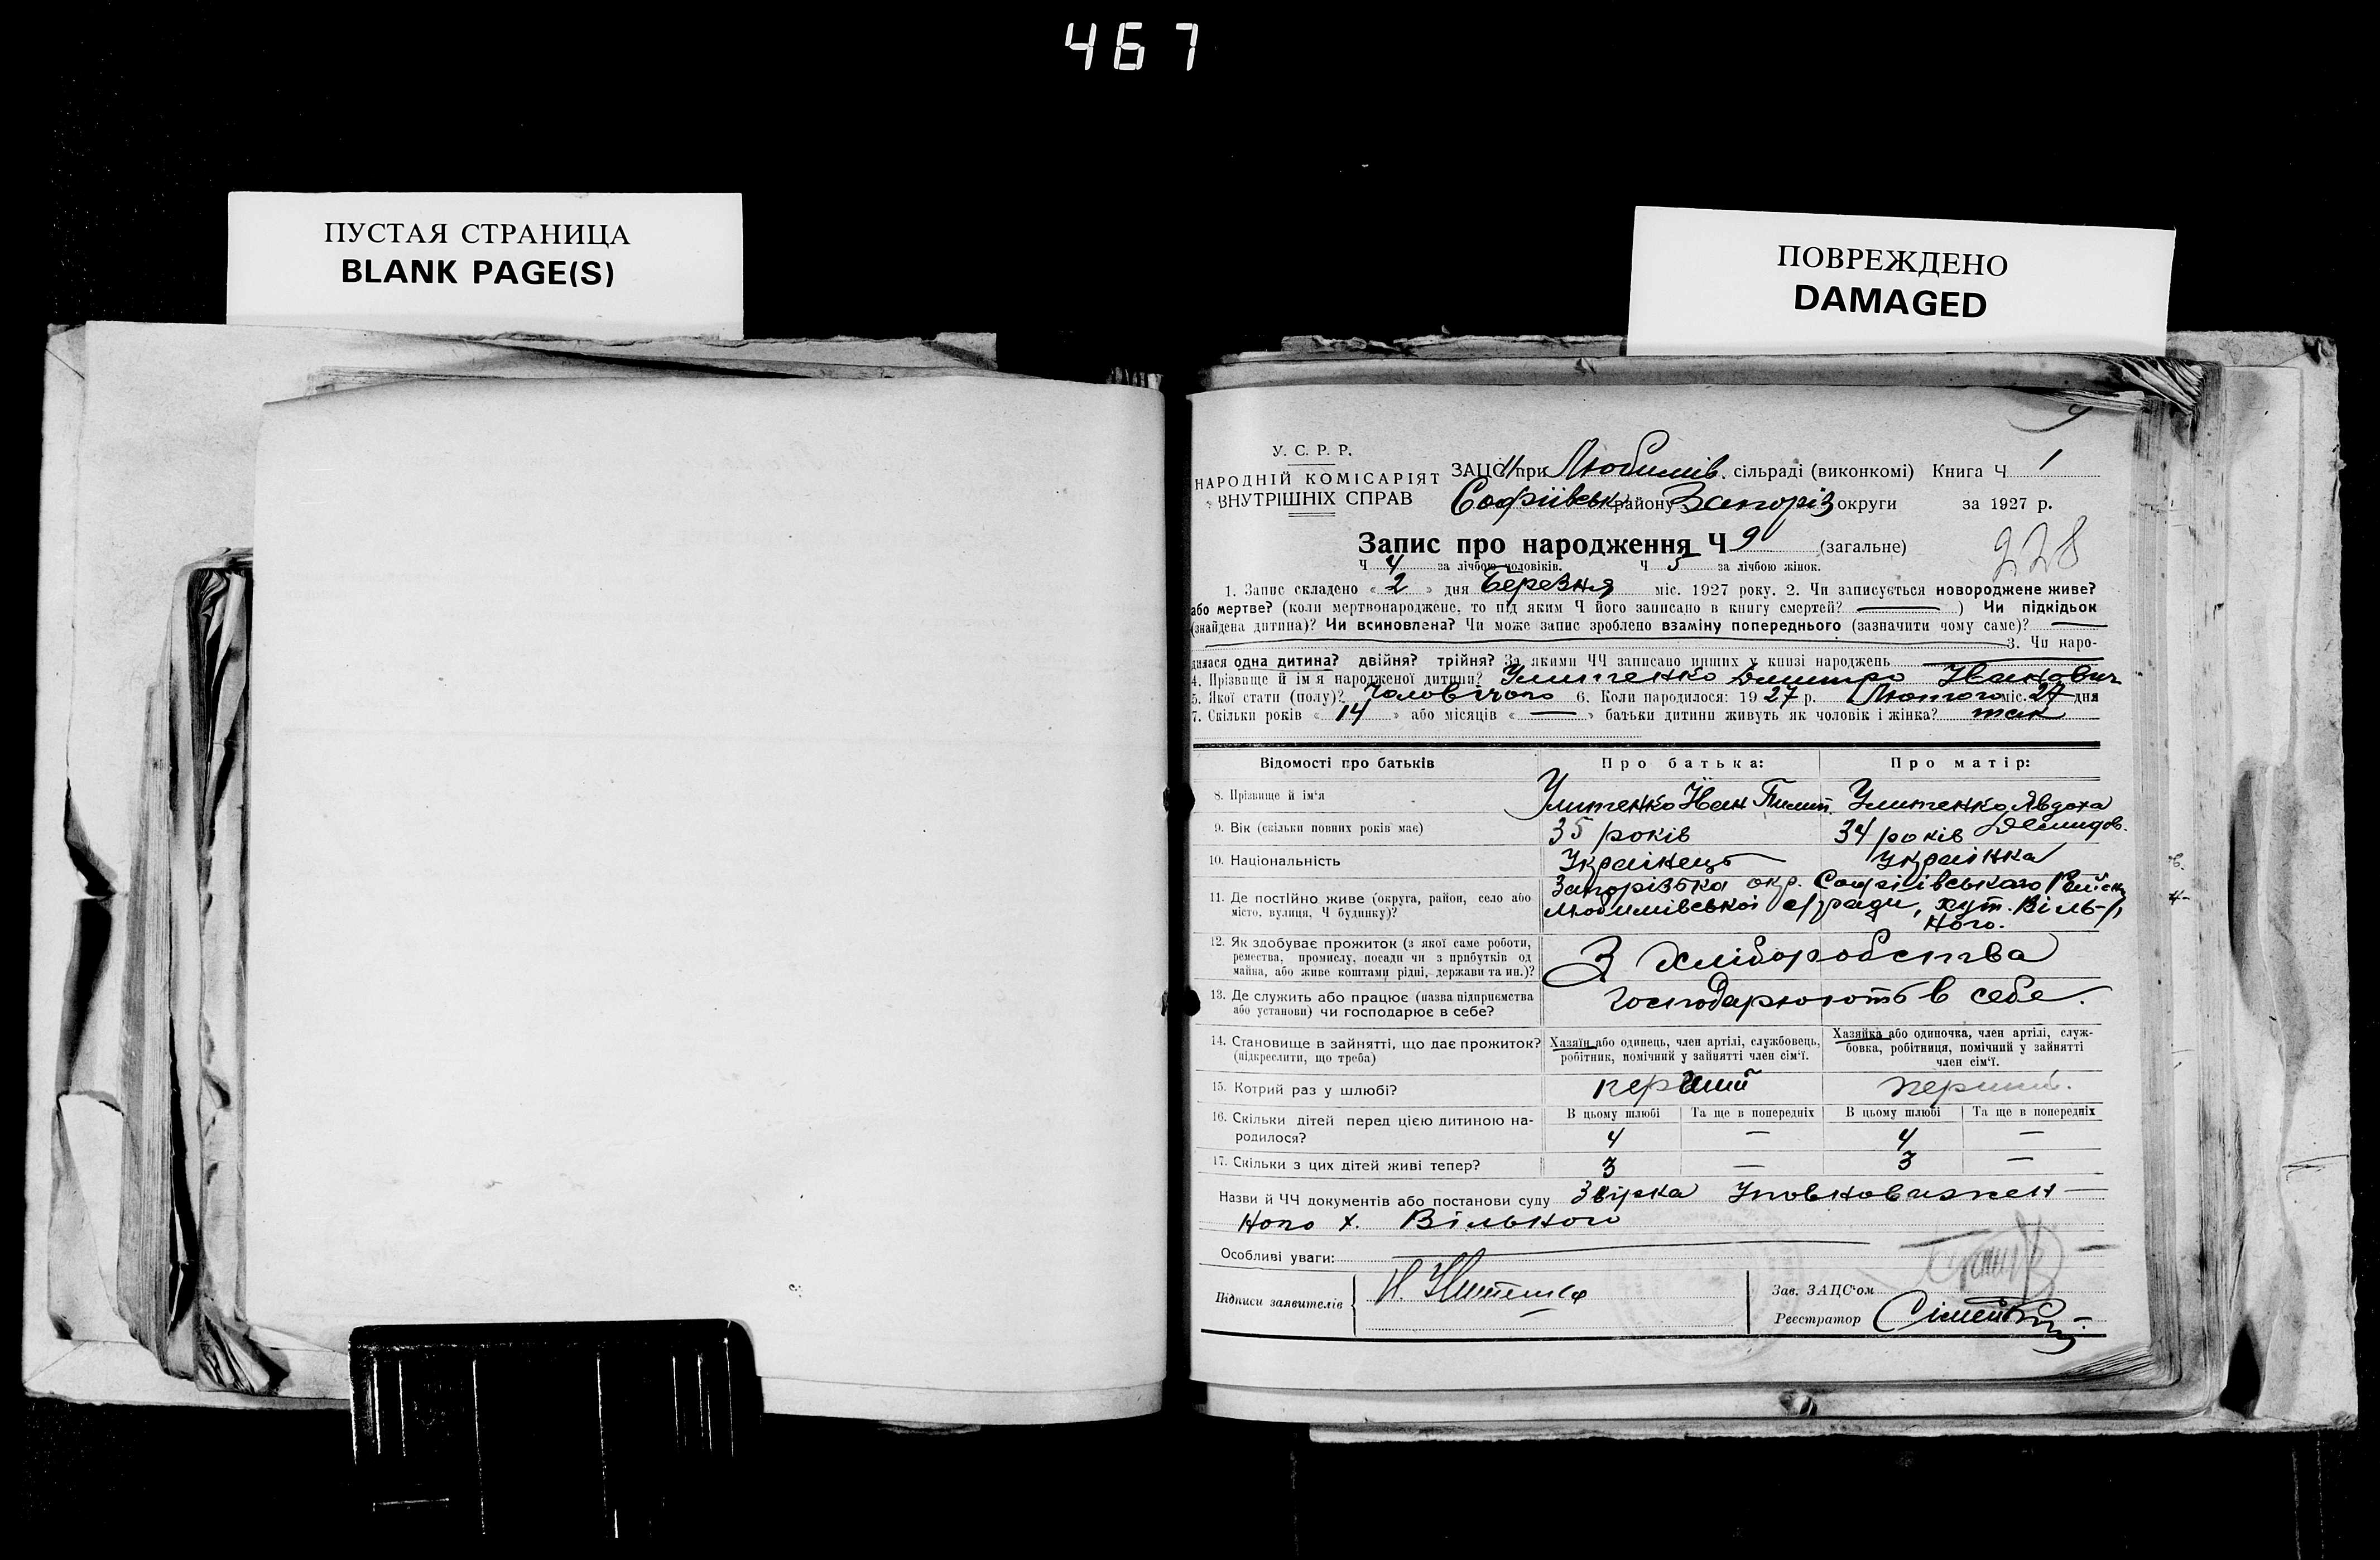 467
ПУСТАЯ СТРАНИЦА
BLANK PAGE(S)
ПОВРЕЖДЕНО
DAMAGED
У. С. Р. Р.
НАРОДНІЙ КОМІСАРІЯТ
ВНУТРІШНІХ СПРАВ
ЗАЦС при Любимів. сільраді (виконкомі) Книга Ч 1
Софіївськ району Запоріз округи за 1927 р.
Запис про народження Ч 9 (загальне)
228
Ч 4 за лічбою чоловіків. Ч 5 за лічбою жінок.
1. Запис складено « 2 » дня Березня міс. 1927 року. 2. Чи записується новороджене живе?
або мертве? (коли мертвонароджене, то під яким Ч його записано в книгу смертей? —) Чи підкідьок
(знайдена дитина)? Чи всиновлена? Чи може запис зроблено взаміну попереднього (зазначити чому саме)? —
3. Чи наро-
дилася одна дитина? двійня? трійня? За якими ЧЧ записано инших у книзі народжень —
4. Прізвище й ім'я народженої дитини? Улитенко Дмитро Іванович
5. Якої стати (полу)? Чоловічого 6. Коли народилося: 1927 р. Лютого міс. 27 дня
7. Скільки років « 14 » або місяців « — » батьки дитини живуть як чоловік і жінка? так
Відомості про батьків Про батька: Про матір:
8. Прізвище й ім'я Улитенко Іван Пилип. Улитенко Явдоха
Демидов.
9. Вік (скільки повних років має) 35 років 34 років
10. Національність Українець Українка
11. Де постійно живе (округа, район, село або
місто, вулиця, Ч будинку)?
Запорізька окр. Софіївського
Любимівської с/ради, хут. Віль-
ного.
12. Як здобуває прожиток (з якої саме роботи,
ремества, промислу, посади чи з прибутків од
майна, або живе коштами рідні, держави та ин.)?
З хліборобства
13. Де служить або працює (назва підприємства
або установи) чи господарює в себе?
Господарюють в себе.
14. Становище в зайнятті, що дає прожиток?
(підкреслити, що треба)
Хазяїн або одинець, член артілі, службовець,
робітник, помічний у зайнятті член сім'ї.
Хазяйка або одиночка, член артілі, служ-
бовка, робітниця, помічний у зайнятті
член сім'ї.
15. Котрий раз у шлюбі? перший перший.
16. Скільки дітей перед цією дитиною на-
родилося?
В цьому шлюбі Та ще в попередніх В цьому шлюбі Та ще в попередніх
4 — 4 —
17. Скільки з цих дітей живі тепер? 3 — 3 —
Назви й ЧЧ документів або постанови суду Звірка Уповноважен-
ного х. Вільного
Особливі уваги:
Підписи заявителів
Зав. ЗАЦС'ом
Реєстратор